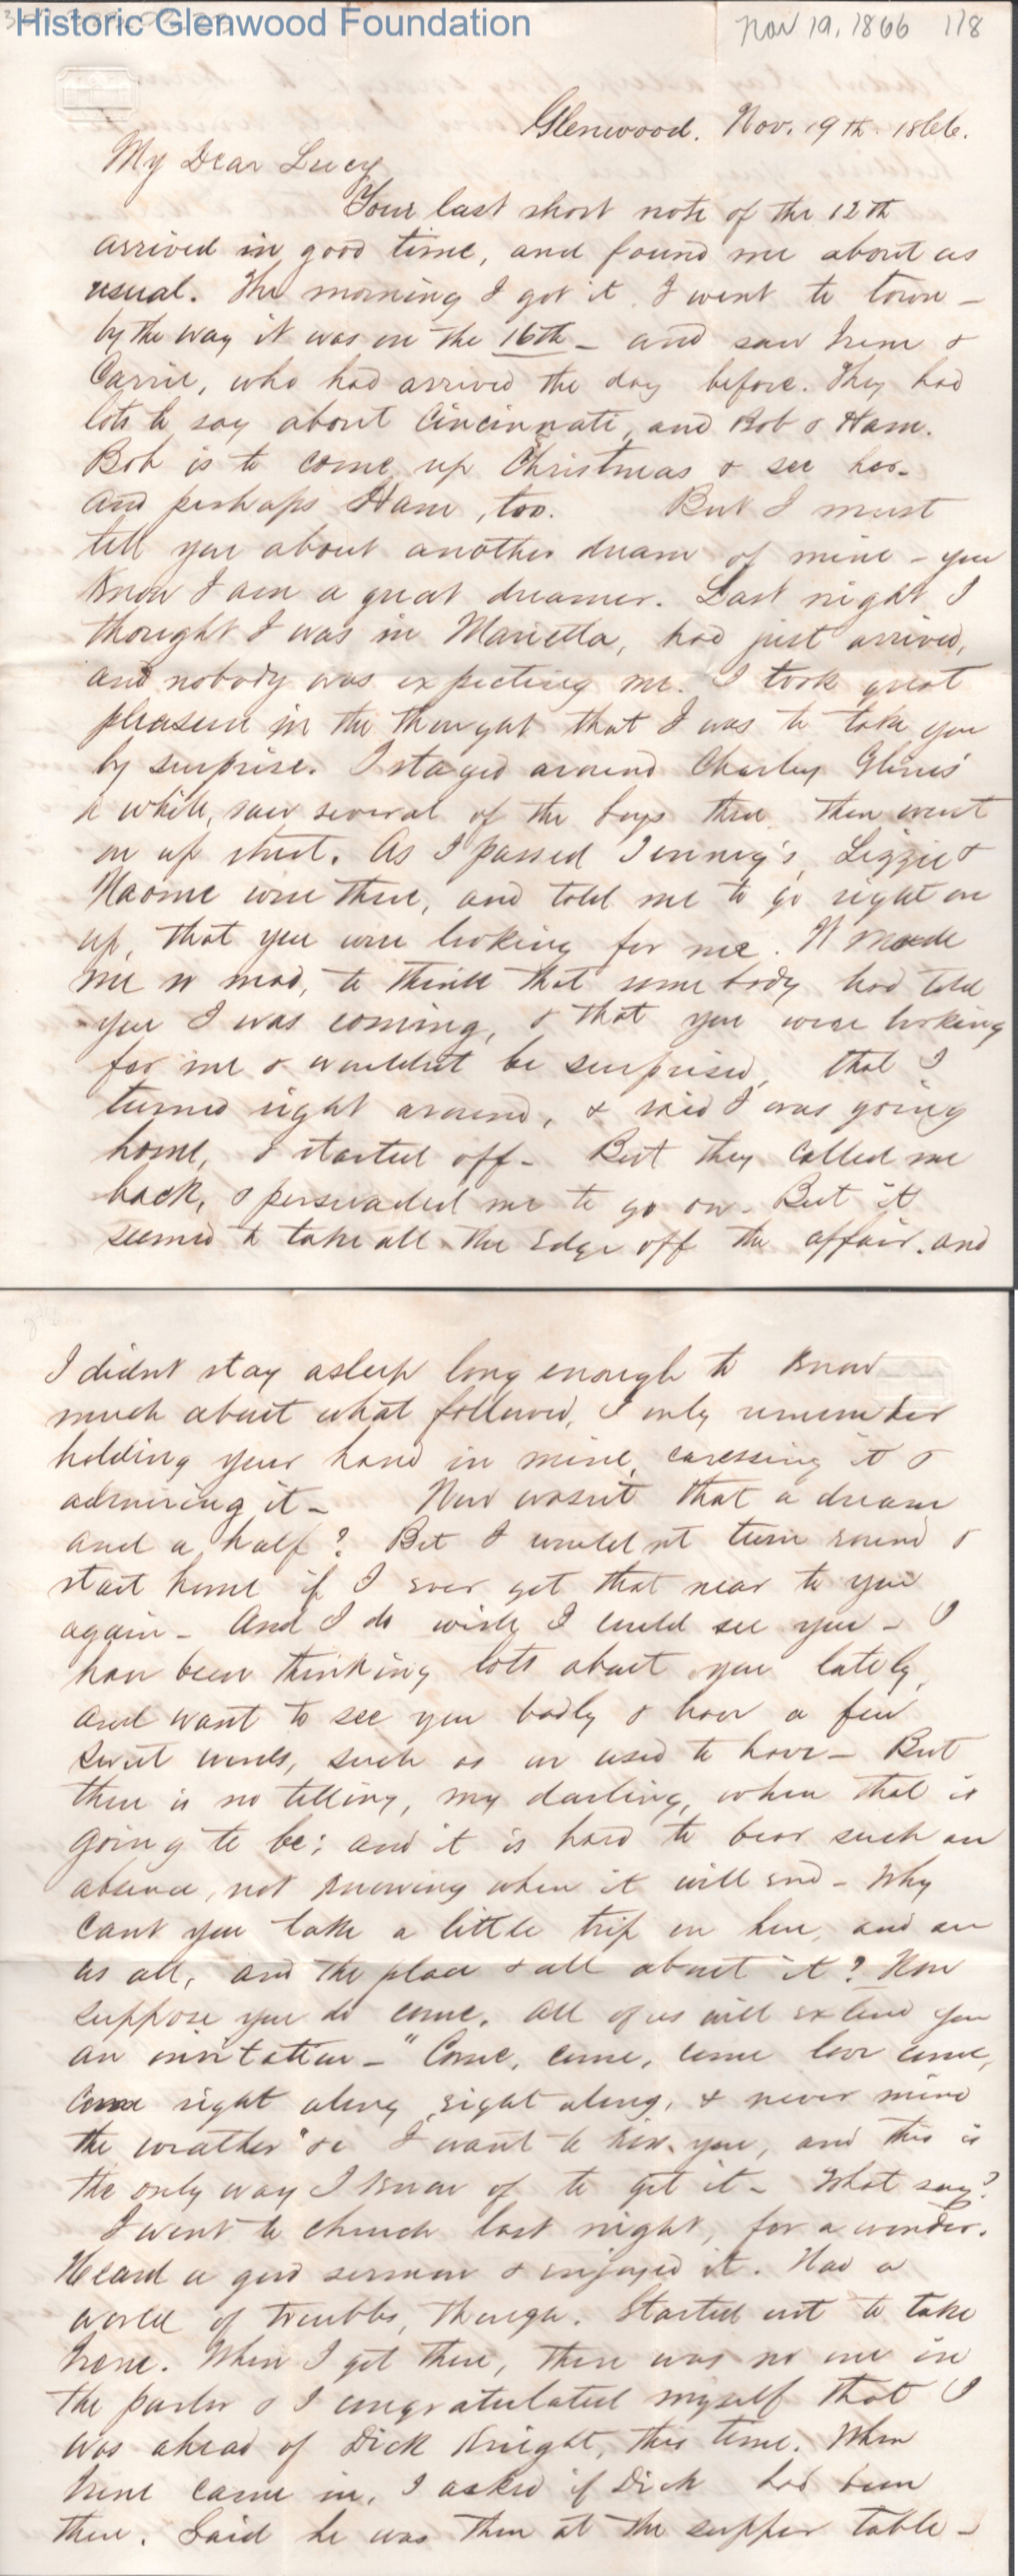 Historic Glenwood Foundation
Nov 19, 1866 118
Glenwood. Nov. 19th. 1866.
My Dear Lucy
Your last short note of the 12th
arrived in good time, and found me about as
usual. The morning I got it I went to town –
by the way it was on the 16th – and saw Irene &
Carrie, who had arrived the day before. They had
lots to say about Cincinnati, and Bob & Ham.
Bob is to come up Christmas & see her –
and perhaps Ham, too. But I must
tell you about another dream of mine – you
know I am a great dreamer. Last night I
thought I was in Marietta, had just arrived,
and nobody was expecting me. I took great
pleasure in the thought that I was to take you
by surprise. I stayed around Charley Glines'
a while, saw several of the boys there then went
on up street. As I passed Jenny's, Lizzie &
Naome were there, and told me to go right on
up, that you were looking for me. It made
me so mad, to think that some body had told
you I was coming, & that you were looking
for me & wouldnt be surprised, that I
turned right around, & said I was going
home, & started off – But they called me
back, & persuaded me to go on. But it
seemed to take all the edge off the affair. and
I didnt stay asleep long enough to know
much about what followed, I only remember
holding your hand in mine, caressing it &
admiring it – Now wasnt that a dream
and a half? But I would nt turn round &
start home if I ever got that near to you
again – And I do wish I could see you – I
have been thinking lots about you lately,
and want to see you badly & have a few
sweet words, such as we used to have – But
there is no telling, my darling, when that is
going to be; and it is hard to bear such an
absence, not knowing when it will end – Why
cant you take a little trip up here, and see
us all, and the place & all about it? Now
suppose you do come. All of us will extend you
an invitation – "Come, come, come love come,
Come right along, right along, & never mind
the weather" &c I want to kiss you, and this is
the only way I know of to get it – What say?
I went to church last night, for a wonder.
Heard a good sermon & enjoyed it. Had a
world of trouble, though. Started out to take
Irene. When I got there, there was no one in
the parlor & I congratulated myself that I
was ahead of Dick Knight, this time. When
Irene came in, I asked if Dick had been
there. Said he was then at the supper table –